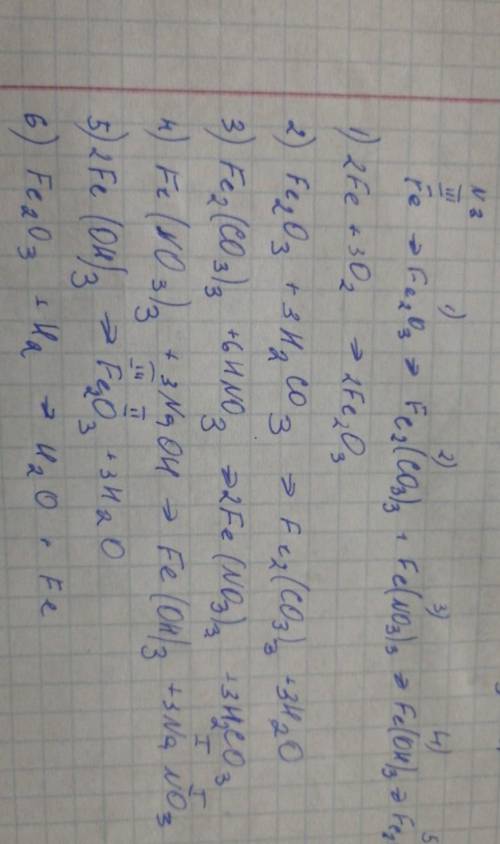 N 3
III
Fe → Fe₂O₃ → Fe₂(CO₃)₃ → Fe(NO₃)₃ → Fe(OH)₃ → Fe₂
1) 2) 3) 4) 5
1) 2Fe + 3O₂ → 2Fe₂O₃
2) Fe₂O₃ + 3H₂CO₃ → Fe₂(CO₃)₃ + 3H₂O
3) Fe₂(CO₃)₃ + 6HNO₃ → 2Fe(NO₃)₃ + 3H₂CO₃
III I I
4) Fe(NO₃)₃ + 3NaOH → Fe(OH)₃ + 3NaNO₃
III II
5) 2Fe(OH)₃ → Fe₂O₃ + 3H₂O
6) Fe₂O₃ + H₂ → H₂O + Fe